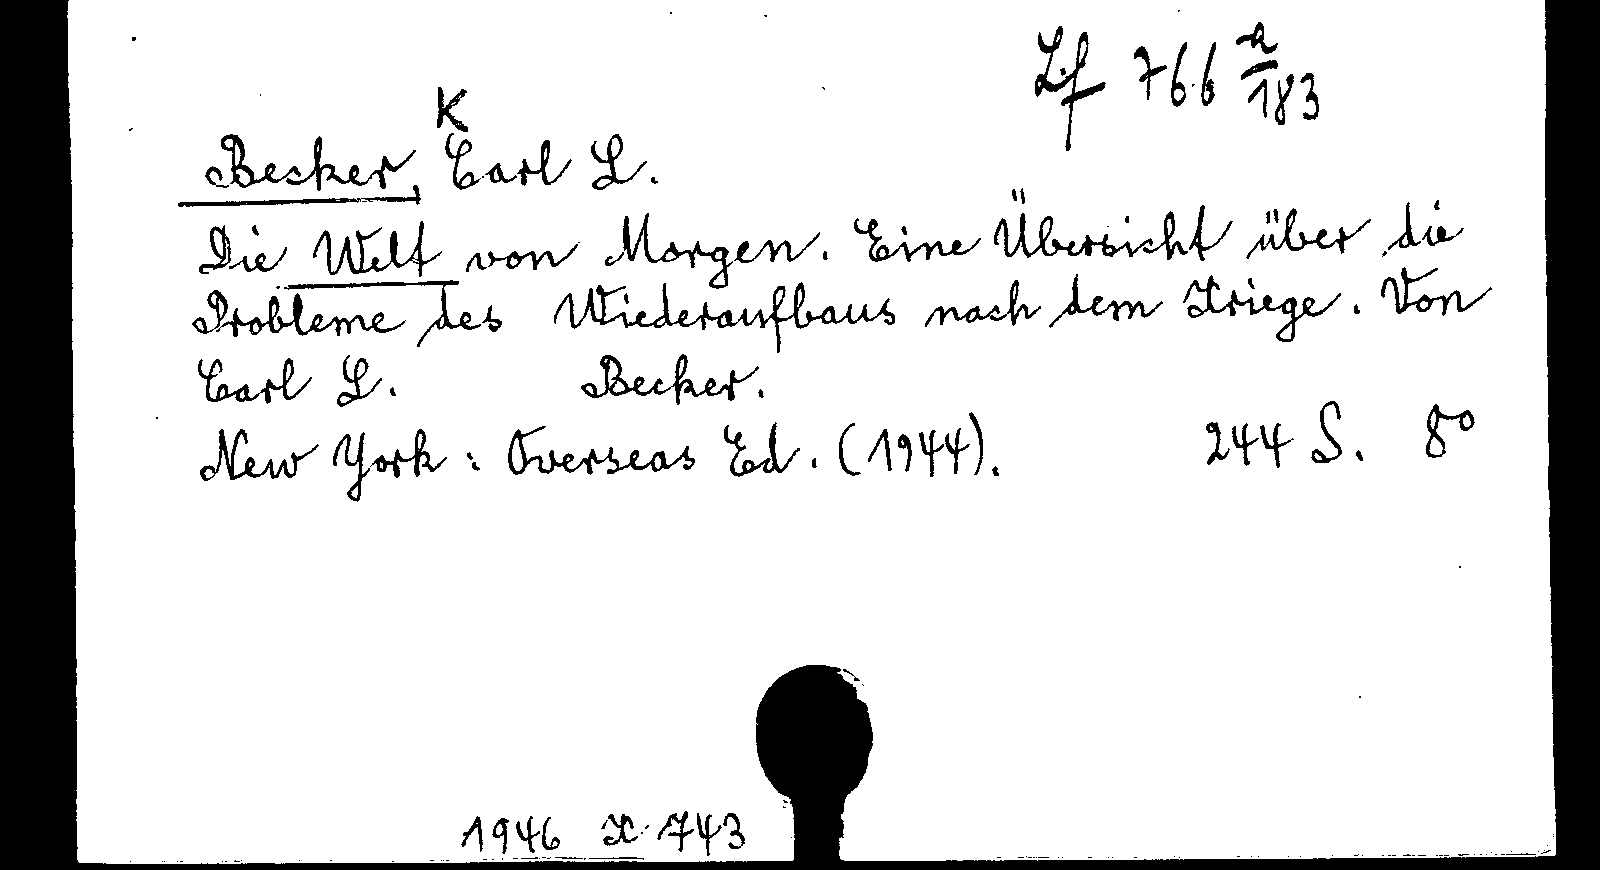 Lf 766 a/183
K
Becker, Carl L.
Die Welt von Morgen. Eine Übersicht über die
Probleme des Wiederaufbaus nach dem Kriege. Von
Carl L. Becker.
New York: Overseas Ed. (1944). 244 S. 8°
1946 X 743